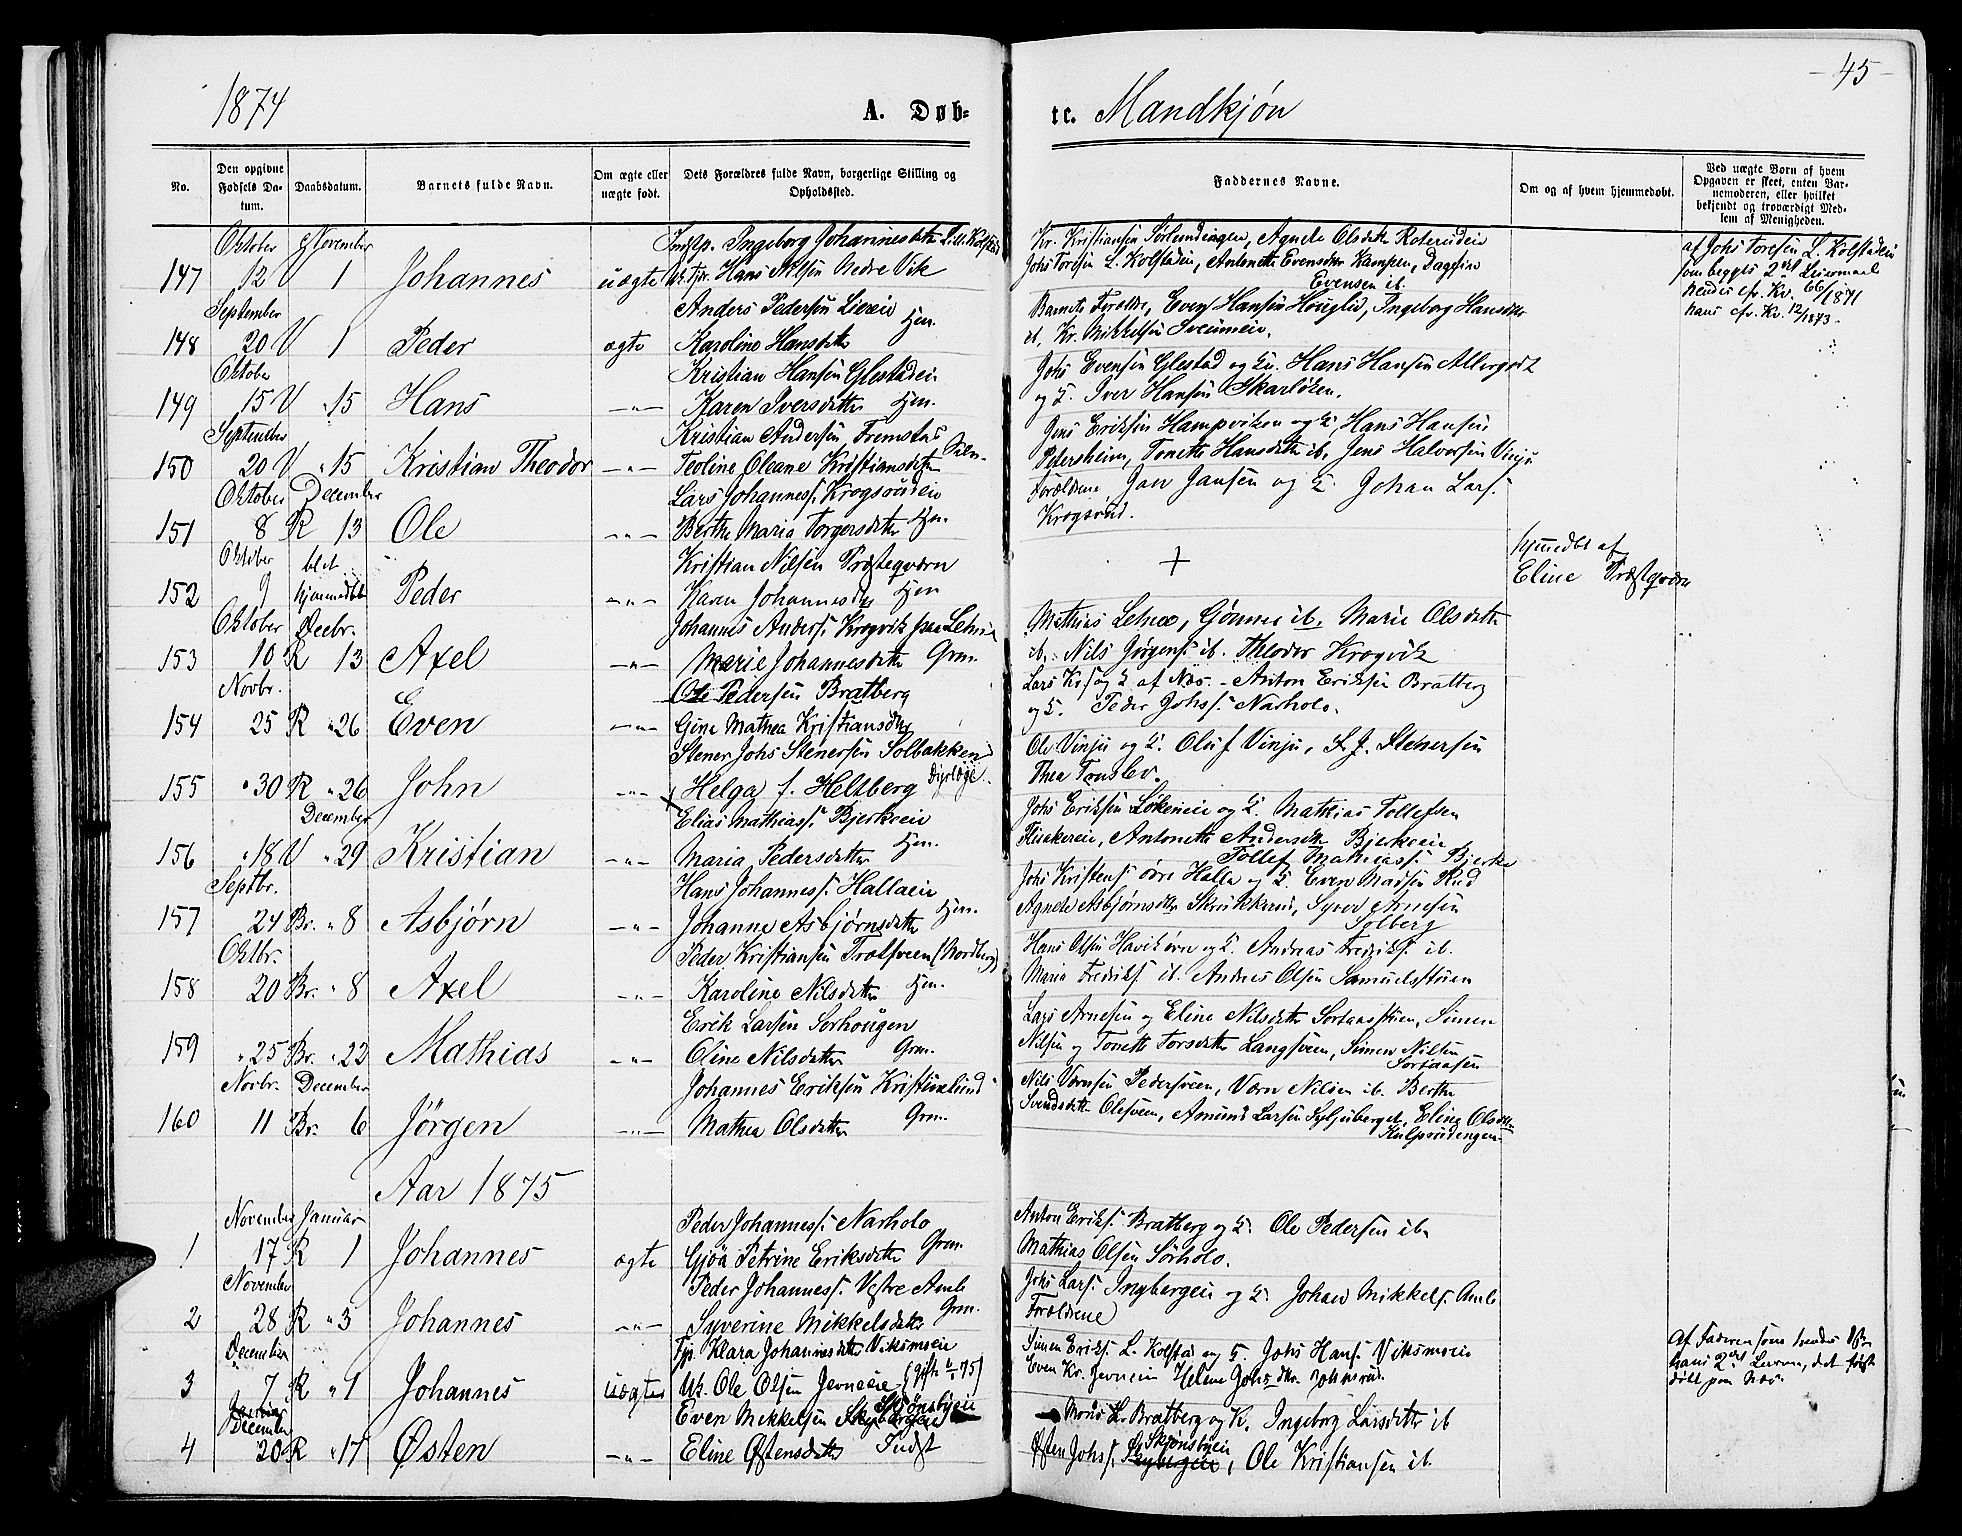 1874
A. Døb-
te. Mandkjøn
- 45 -
No.
Den opgivne Fødsels Da-tum.
Daabsdatum.
Barnets fulde Navn.
Om ægte eller uægte født.
Dets Forældres fulde Navn, borgerlige Stilling og Opholdssted.
Faddernes Navne.
Om og af hvem hjemmedøbt.
Ved uægte Børn af hvem Opgaven er skeet, enten Bar-nemoderen, eller hvilket bekjendt og troværdigt Med-lem af Menigheden.
Oktober November
147 12 V 1 Johannes uægte
Ingeborg Johannesdatter Lille Kolstad
Hans Nilsen Nedre Vik
Kr. Kristiansen Sørlundingen, Agnete Olsdatter Roterudeie
Johs Toresen L. Kolstadeie, Antonette Evensdtr Kampen, Dagfin
Evensen ib.
af Johs Toresen L. Kolstadeie
som begges 2det Leiermaal
hendes cfr. Kv. 66/1871
hans cfr. Kv. 12/1873.
September
148 20 V 1 Peder ægte
Anders Pedersen Lieeie
Karoline Hansdatter Hjen.
Barnets Forældre, Even Hansen Høuglid, Ingeborg Hansdtr
ib, Kr. Mikkelsen Sveumeie.
Oktober
149 15 V " 15 Hans -"-
Kristian Hansen Glestadeie
Karen Iversdatter Hjen.
Johs Evensen Glestad og K. Hans Hansen Allergodt
og K. Iver Hansen Skarløken.
September
150 20 V " 15 Kristian Theodor -"-
Kristian Andersen Fremstad
Teoline Oleane Kristiansdatter
Jens Eriksen Hampviken og K, Hans Hansen
Petersheim, Tonette Hansdatter ib, Jens Halvorsen Vinju
Oktober December
151 8 R 13 Ole -"-
Lars Johanness. Krogsrudeie
Berthe Maria Torgersdatter Hjen.
Forældrene Jan Jansen og K Johan Lars.
Krogsrud.
Oktober blot
152 9 hjemmedbt Peder -"-
Kristian Nilsen Præsteqværn
Karen Johannesdtr Hjen
+
hjemdbt af
Eline Præsteqværn
Oktober Decbr.
153 10 R 13 Axel -"-
Johannes Anders. Krogvik paa Letnæ
Marie Johannesdatter Grm.
Mathias Letnæ, Gønner ib. Marie Olsdatter
ib. Nils Jørgens. ib. Theodor Krogvik
Novbr.
154 25 R " 26 Even -"-
Ole Pedersen Bratberg
Gina Mathea Kristiansdtr
Lars Krs og K af Næs. - Anton Eriksen Bratberg
og K. Peder Johs. Narholo.
155 " 30 R " 26 John -"-
Stener Johs Stenersen Solbakken
Helga f. Heltberg Dyrlæge.
Ole Vinju og K. Oluf Vinju, S. J. Stenersen
Thea Tønslev.
December
156 " 18 V " 29 Kristian -"-
Elias Mathiass. Bjerkeeie
Maria Pedersdatter Hjen.
Johs Eriksen Løkeneie og K. Mathias Tollefsen
Flisakereie, Antonette Andersdtr Bjerkeeie
Tollef Mathiass. Bjerke
Septbr.
157 24 Br. " 8 Asbjørn -"-
Hans Johanness. Hallaeie
Johanne Asbjørnsdatter Hjen.
Johs Kristens. øvre Halla og K. Even Madsen Rud
Agnete Asbjørnsdtr Skrukkerud, Syver Arnesen
Solberg
Oktbr.
158 20 Br. " 8 Axel -"-
Peder Kristiansen Trotsveen (Nordberg)
Karoline Nilsdatter Hjen.
Hans Olsen Havik øvre og K. Andreas Fredriks. ib.
Maria Fredriks. ib. Andres Olsen Samuelsstuen
159 " 25 Br. " 22 Mathias -"-
Erik Larsen Sørhougen
Oline Nilsdatter Grm.
Lars Arnesen og Eline Nilsdatter Sortaasstuen, Simen
Nilsen og Tonette Torsdatter Langsveen, Simen Nilsen
Sortaasen
Novbr. December
160 11 Br. 6 Jörgen -"-
Johannes Eriksen Kristinelund
Mathea Olsdatter Grm.
Nils Værnsen Pedersveen, Værn Nilsen ib. Berthe
Svendsdatter Olesveen, Amund Larsen Syljuberget, Eline Olsdtr
Kulpsrudengen
Aar 1875
November Januar
1 17 R 1 Johannes ægte
Peder Johanness. Narholo
Gjøa Petrine Eriksdatter Grm.
Anton Eriks. Bratberg og K. Ole Pedersen ib
Mathias Olsen Sørholo.
November
2 28 R " 3 Johannes -"-
Peder Johanness. Vestre Amb
Syverine Mikkelsdatter Grm.
Johs Lars. Ingbergeie og K. Johan Mikkels. Amb
Forældrene
December
3 7 R " 1 Johannes uægte
Klara Johannesdatter Viksmoeie
Uk. Ole Olsen Jevneeie (gift 75)
Simen Eriks. L. Kolstad og K Johs Hans. Viksmoeie
Even Kr. Jevneeie Helene Johs.dtr.
Af Faderen som hendes 1ste
hans 2det
Januar
December
4 20 R " 17 Østen -"-
Even Mikkelsen Skybergeie Skjønsbyeie
Eline Østensdatter Indst
Mons L. Bratberg og K. Ingeborg Larsdatter ib
Østen Johs. Skybergeie Skjønsbyeie, Ole Kristiansen ib.